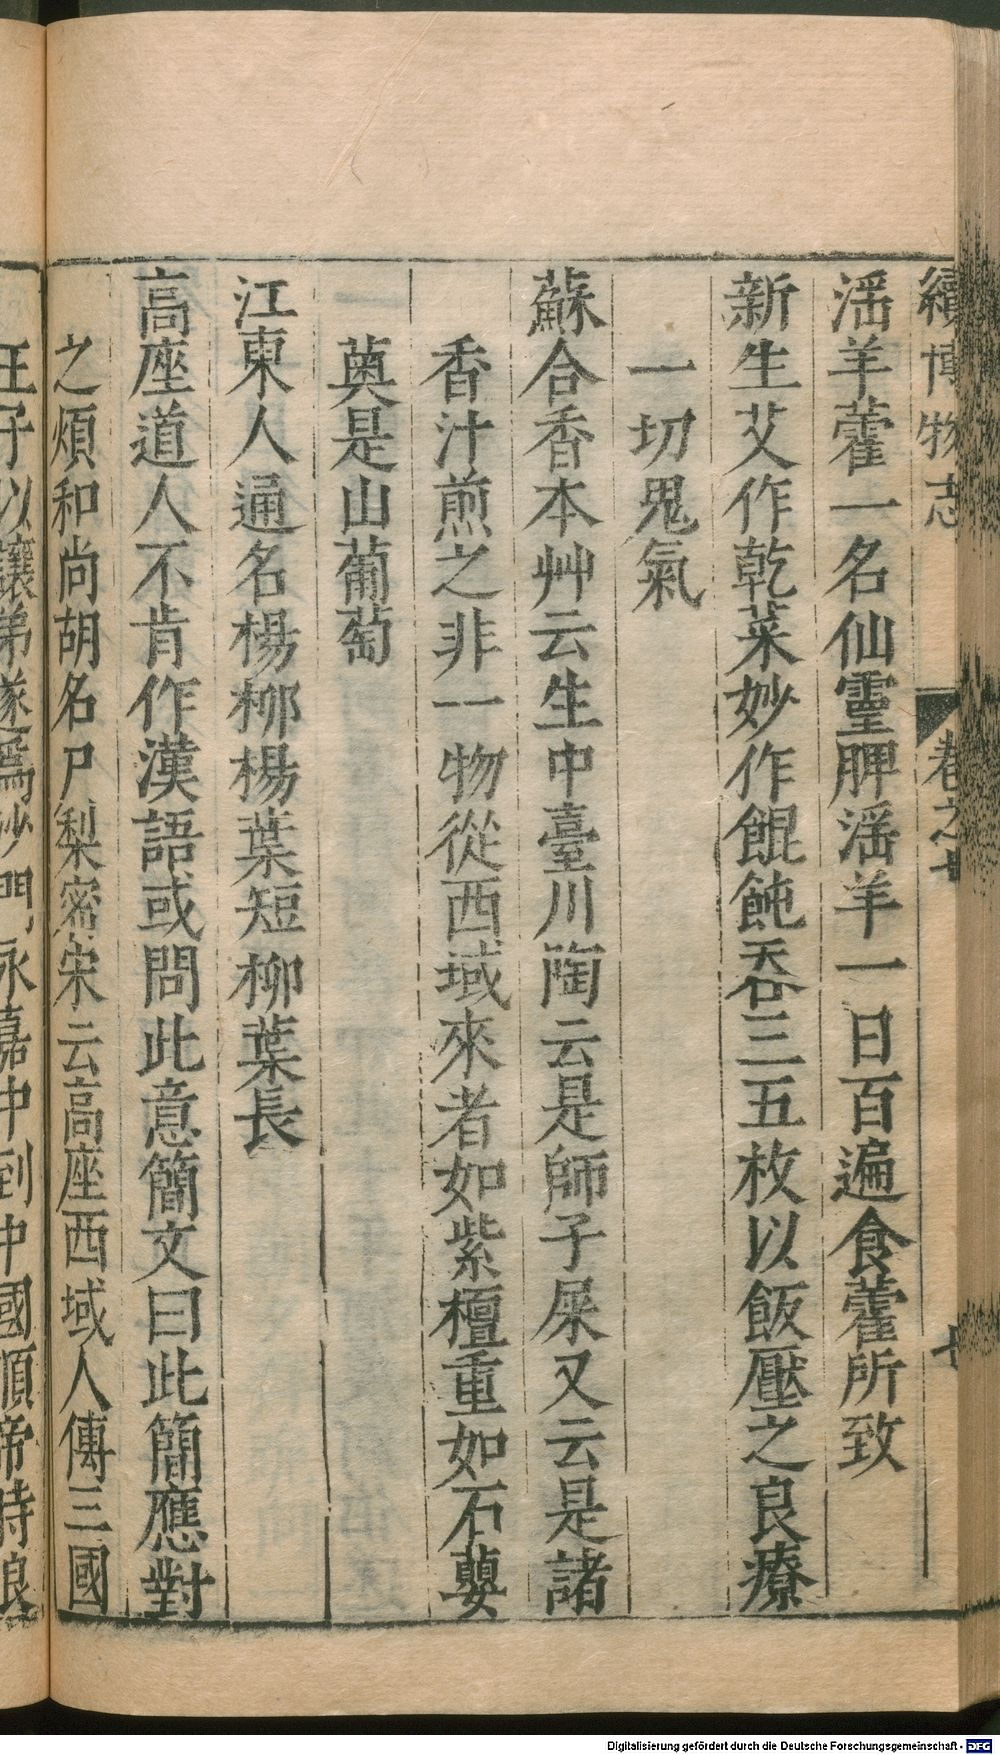 續博物志 卷之七 七
滛羊藿一名仙靈脾滛羊一日百遍食藿所致
新生艾作乾菜妙作餛飩吞三五枚以飯壓之良療
一切鬼氣
蘇合香本艸云生中臺川陶云是師子屎又云是諸
香汁煎之非一物從西域來者如紫檀重如石蘡
薁是山葡萄
江東人通名楊柳楊葉短柳葉長
高座道人不肯作漢語或問此意簡文曰此簡應對
之煩和尚胡名尸梨密宋云高座西域人傳三國
王子以讓弟遂爲沙門永嘉中到中國順帝時狼
Digitalisierung gefördert durch die Deutsche Forschungsgemeinschaft - DFG